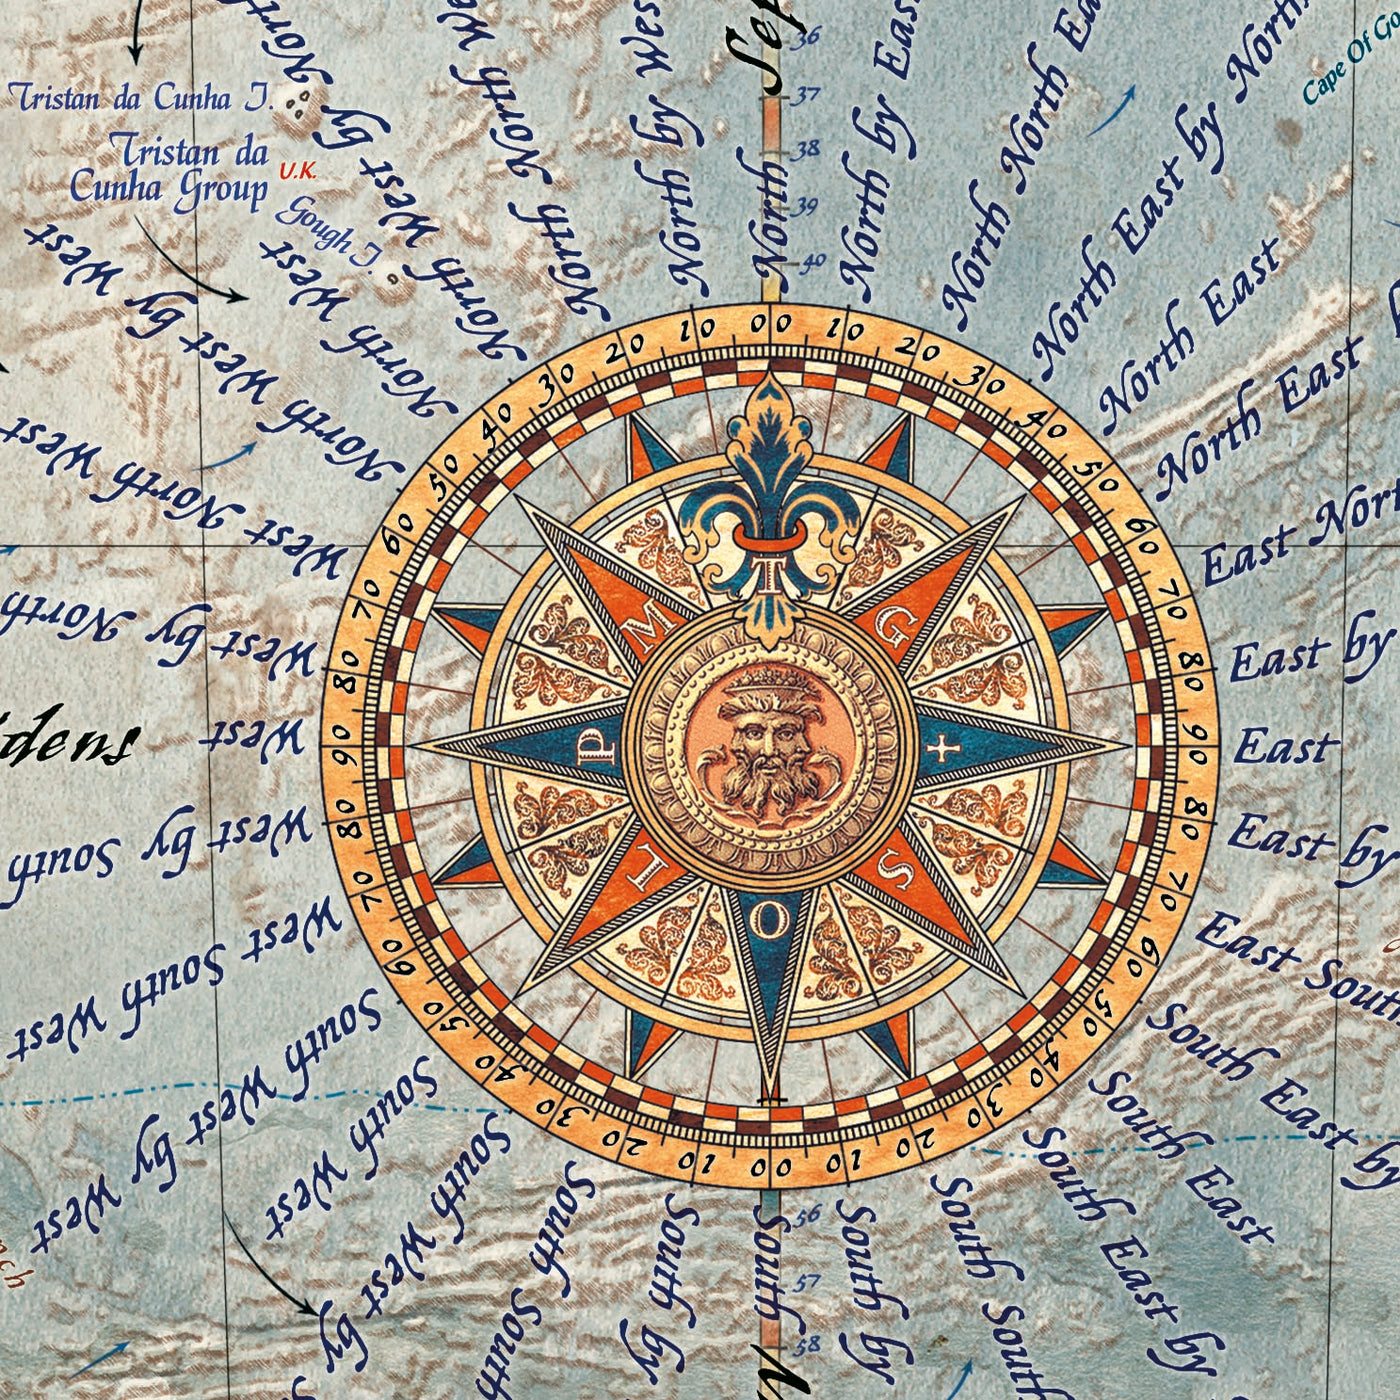 Sep
36
37
38
39
40
Cape Of Go
Tristan da Cunha I.
Tristan da
Cunha Group
U.K.
Gough I.
North by West West North
North by North
North by Wes
North
North by East
North North Ea
North East by North
North East
North East
East Nor
East by
East
East by
East Sout
South East by
South East
South East by
South South
South by
South
South by
South South
South West by
South West
South West by West
West South West
West by South
West
West by North
West North West
North West by West
North West
dens
00 10 20 30 40 50 60 70 80 90 80 70 60 50 40 30 20 10 00 10 20 30 40 50 60 70 80 90 80 70 60 50 40 30 20 10
T
G
+
S
O
L
P
M
56
57
58